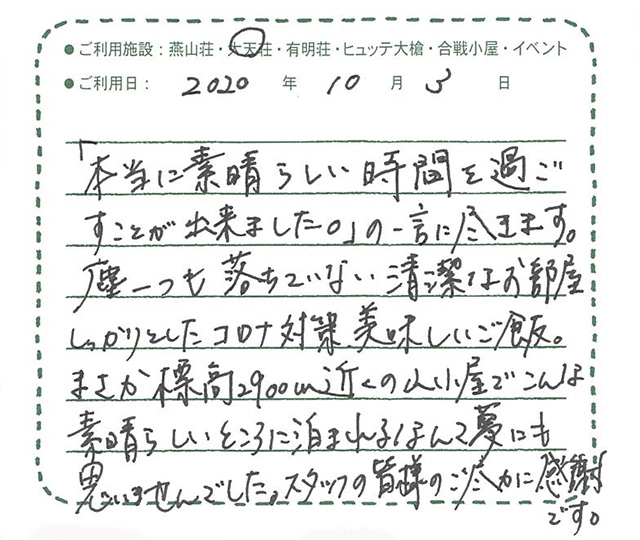 ● ご利用施設：燕山荘・大天荘・有明荘・ヒュッテ大槍・合戦小屋・イベント
● ご利用日： 2020 年 10 月 3 日
「本当に素晴らしい時間を過ご
すことが出来ました。」の一言に尽きます。
塵一つも落ちていない清潔なお部屋
しっかりとしたコロナ対策美味しいご飯。
まさか標高2900m近くの山小屋でこんな
素晴らしいところに泊まれるなんて夢にも
思いませんでした。スタッフの皆様のご尽力に感謝
です。